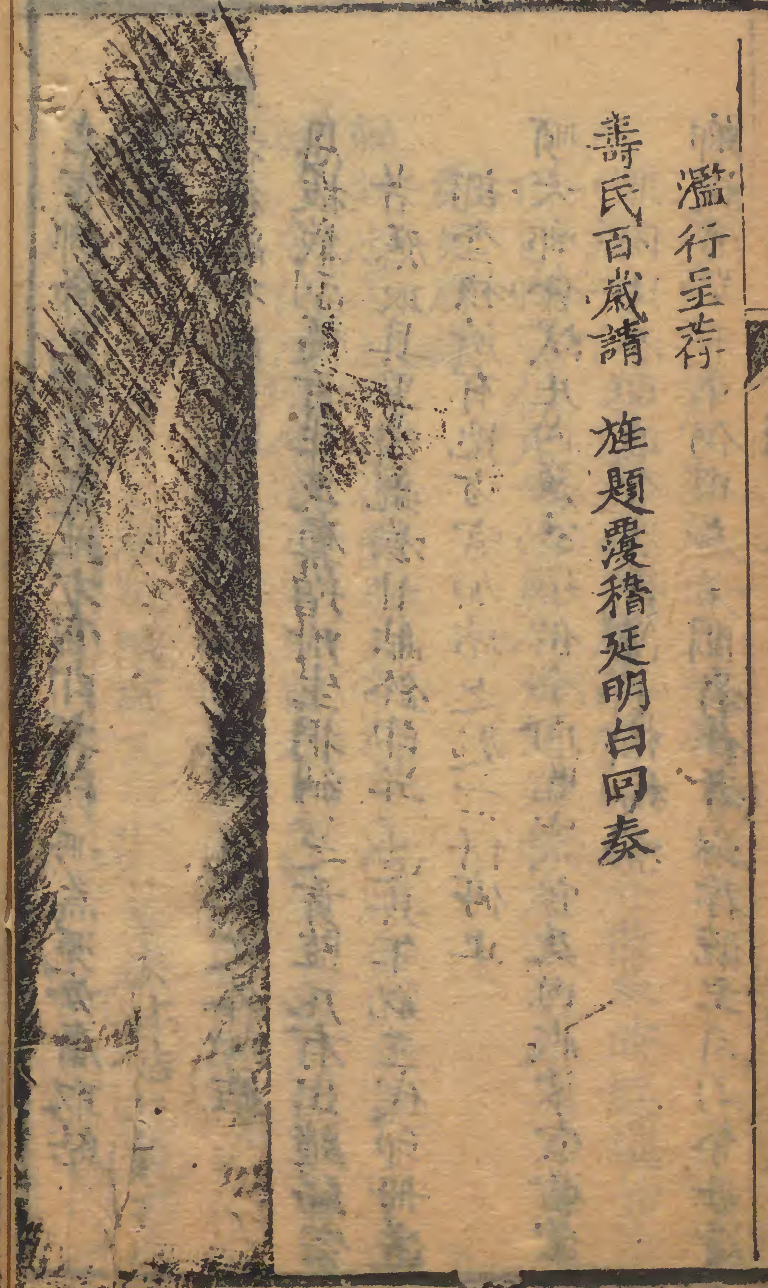 濫行呈荐
壽民百歲請 旌題覆稽延明白回奏